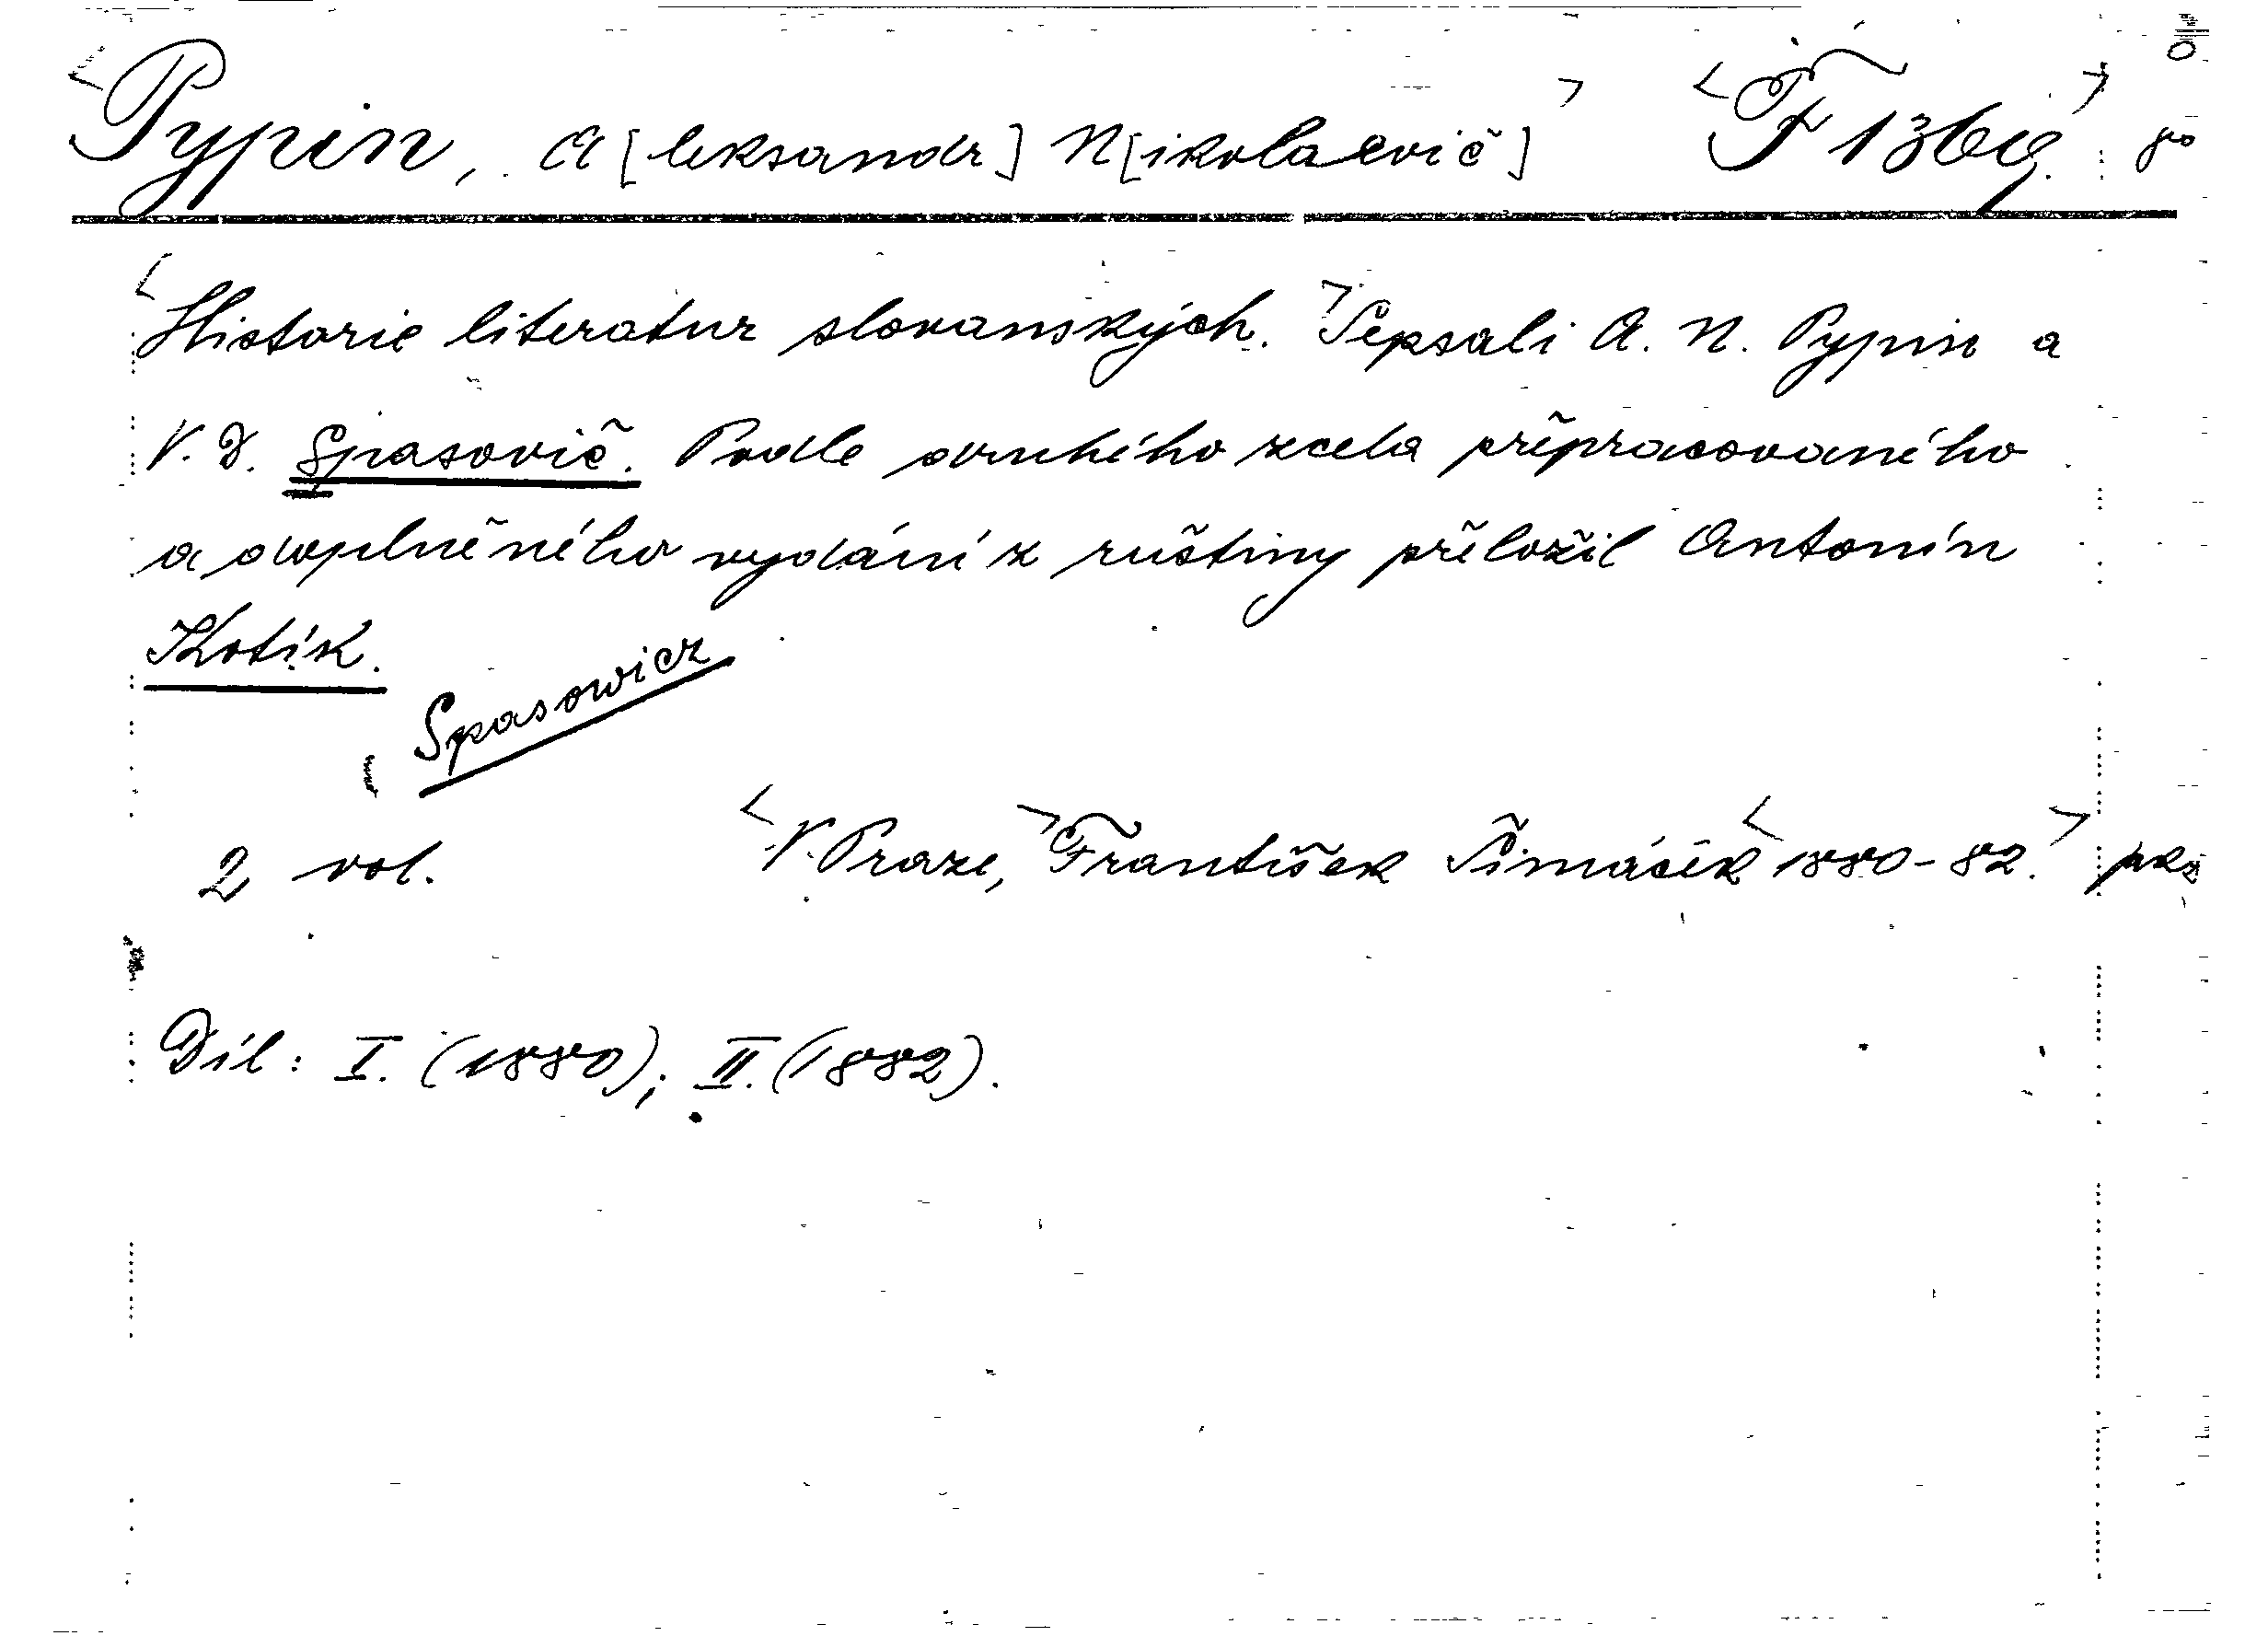 <Pypin, A[leksandr] N[ikolaevič]> <F 1369.> 8º
<Historie literatur slovanských.> Sepsali A. N. Pypin a
V. D. Spasovič. Podle druhého zcela přepracovaného
a doplněného vydání z ruštiny přeložil Antonín
Kotík.
Spasowicz
2 vol. <V Praze,> František Šimáček <1880-82.>
Díl: I. (1880); II. (1882).